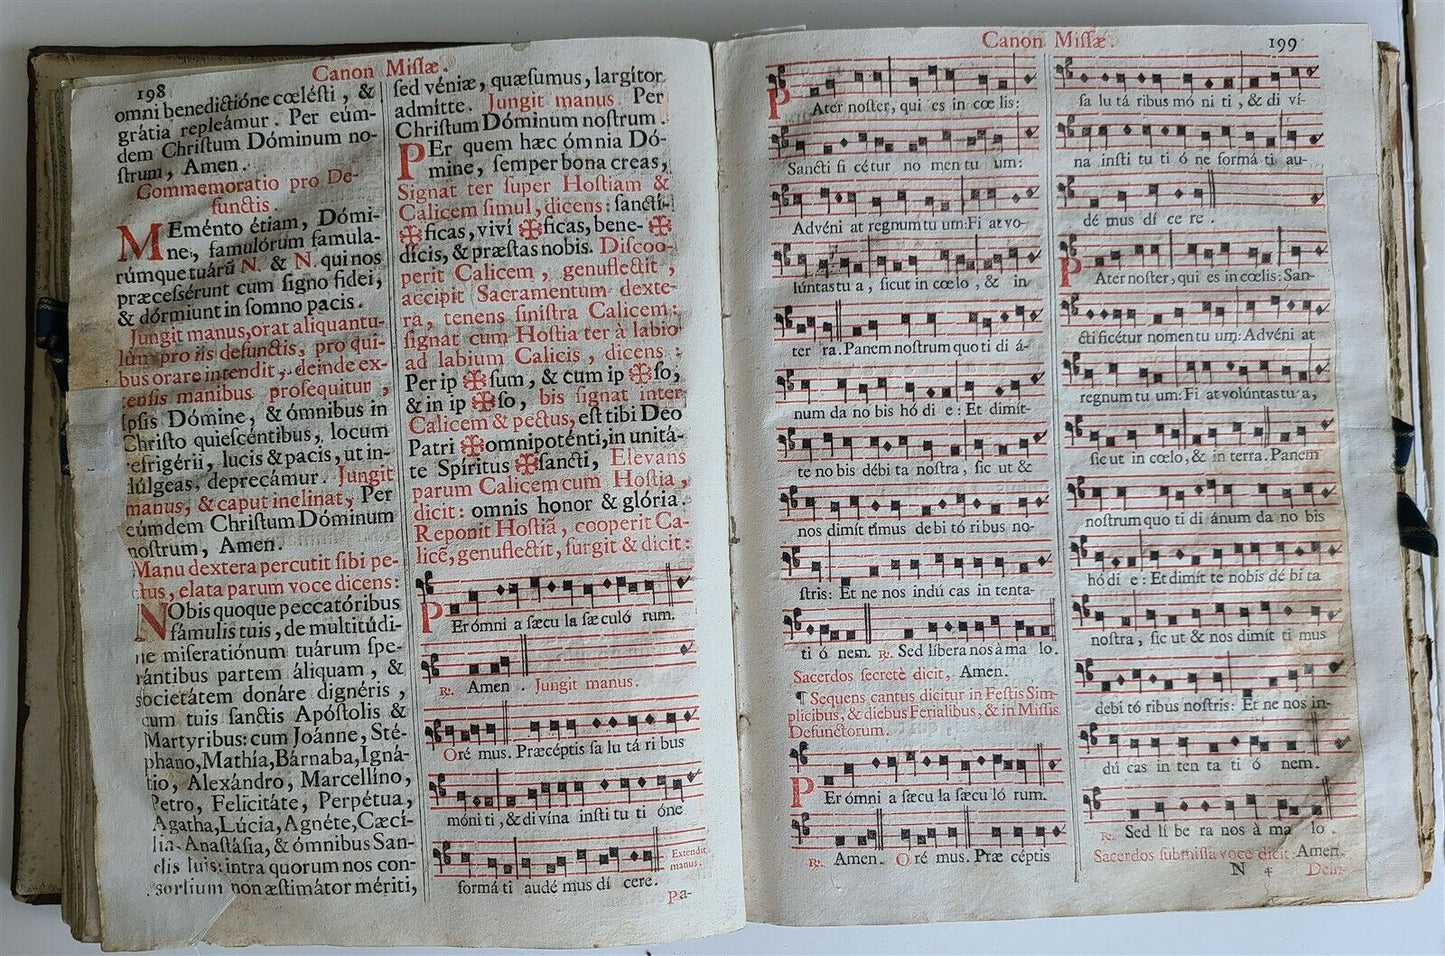 198
Canon Missæ.
omni benedictióne cœlésti, &
grátia repleámur. Per eúm-
dem Christum Dóminum no-
strum, Amen.
Commemoratio pro De-
functis
MEménto étiam, Dómi-
ne, famulórum famula-
rúmque tuárũ N. & N. qui nos
præcessérunt cum signo fidei,
& dórmiunt in somno pacis.
Jungit manus, orat aliquantu-
lum pro iis defunctis, pro qui-
bus orare intendit, deinde ex-
tensis manibus prosequitur,
Ipsis Dómine, & ómnibus in
Christo quiescéntibus, locum
refrigérii, lucis & pacis, ut in-
dúlgeas, deprecámur. Jungit
manus, & caput inclinat, Per
eúmdem Christum Dóminum
nostrum, Amen.
Manu dextera percutit sibi pe-
ctus, elata parum voce dicens:
NObis quoque peccatóribus
fámulis tuis, de multitúdi-
ne miseratiónum tuárum spe-
rántibus partem áliquam, &
societátem donáre dignéris,
cum tuis sanctis Apóstolis &
Martyribus: cum Joánne, Sté-
phano, Mathía, Bárnaba, Igná-
tio, Alexándro, Marcellíno,
Petro, Felicitáte, Perpétua,
Agatha, Lúcia, Agnéte, Cæcí-
lia, Anastásia, & ómnibus San-
ctis tuis: intra quorum nos con-
sortium non æstimátor mériti,
sed véniæ, quæsumus, largítor
admítte. Jungit manus. Per
Christum Dóminum nostrum.
PEr quem hæc ómnia Dó-
mine, semper bona creas,
Signat ter super Hostiam &
Calicem simul, dicens: sanctí-
✠ ficas, viví ✠ ficas, bene- ✠
dícis, & præstas nobis. Discoo-
perit Calicem, genuflectit,
accipit Sacramentum dexte-
ra, tenens sinistra Calicem:
signat cum Hostia ter à labio
ad labium Calicis, dicens:
Per ip ✠ sum, & cum ip ✠ so,
& in ip ✠ so, bis signat inter
Calicem & pectus, est tibi Deo
Patri ✠ omnipoténti, in unitá-
te Spíritus ✠ sancti, Elevans
parum Calicem cum Hostia,
dicit: omnis honor & glória.
Reponit Hostiã, cooperit Ca-
licẽ, genuflectit, surgit & dicit:
PEr ómni a sæcu la sæculó rum.
℟. Amen. Jungit manus.
Oré mus. Præcéptis sa lu tá ri bus
móni ti, & divína insti tu ti óne
formá ti audé mus dí cere.
Extendit
manus.
Pa-
Canon Missæ.
199
PAter noster, qui es in cœ lis:
Sancti fi cétur no men tu um:
Advéni at regnum tu um: Fi at vo-
lúntas tu a, sicut in cœ lo, & in
ter ra. Panem nostrum quo ti di á-
num da no bis hó di e: Et dimít-
te no bis débi ta nostra, sic ut &
nos dimít tímus debi tó ribus no-
stris: Et ne nos indú cas in tenta-
ti ó nem. ℟. Sed líbera nos à ma lo.
Sacerdos secretè dicit, Amen.
¶ Sequens cantus dicitur in Festis Sim-
plicibus, & diebus Ferialibus, & in Missis
Defunctorum.
PEr ómni a sæcu la sæcu ló rum.
℟. Amen. Oré mus. Præ céptis
sa lu tá ribus mó ni ti, & di ví-
na insti tu ti ó ne formá ti au-
dé mus dí ce re.
PAter noster, qui es in cœlis: San-
cti ficétur nomen tu um: Advéni at
regnum tu um: Fi at volúntas tu a,
sic ut in cœlo, & in terra. Panem
nostrum quo ti di ánum da no bis
hó di e: Et dimít te nobis dé bi ta
nostra, sic ut & nos dimít ti mus
debi tó ribus nostris: Et ne nos in-
dú cas in ten ta ti ó nem.
℟. Sed lí be ra nos à ma lo.
Sacerdos submissa voce dicit Amen.
N 4
Dein-